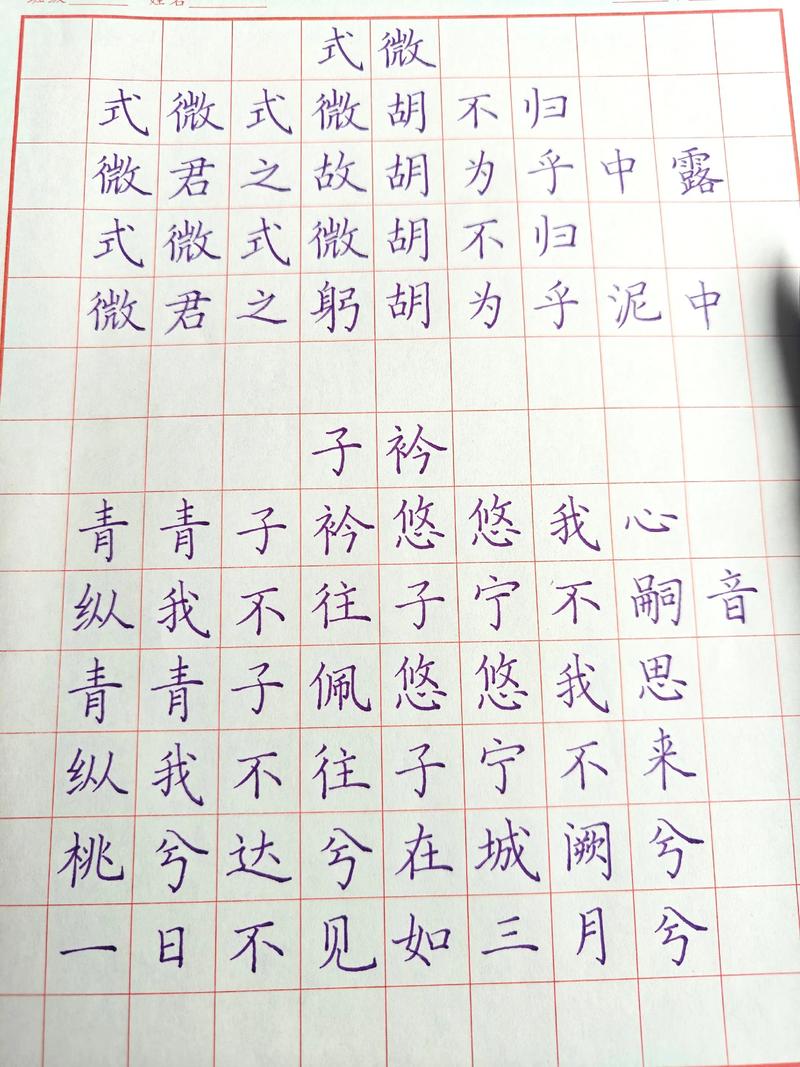 班级 姓名
式微
式微式微胡不归
微君之故胡为乎中露
式微式微胡不归
微君之躬胡为乎泥中
子衿
青青子衿悠悠我心
纵我不往子宁不嗣音
青青子佩悠悠我思
纵我不往子宁不来
桃兮达兮在城阙兮
一日不见如三月兮